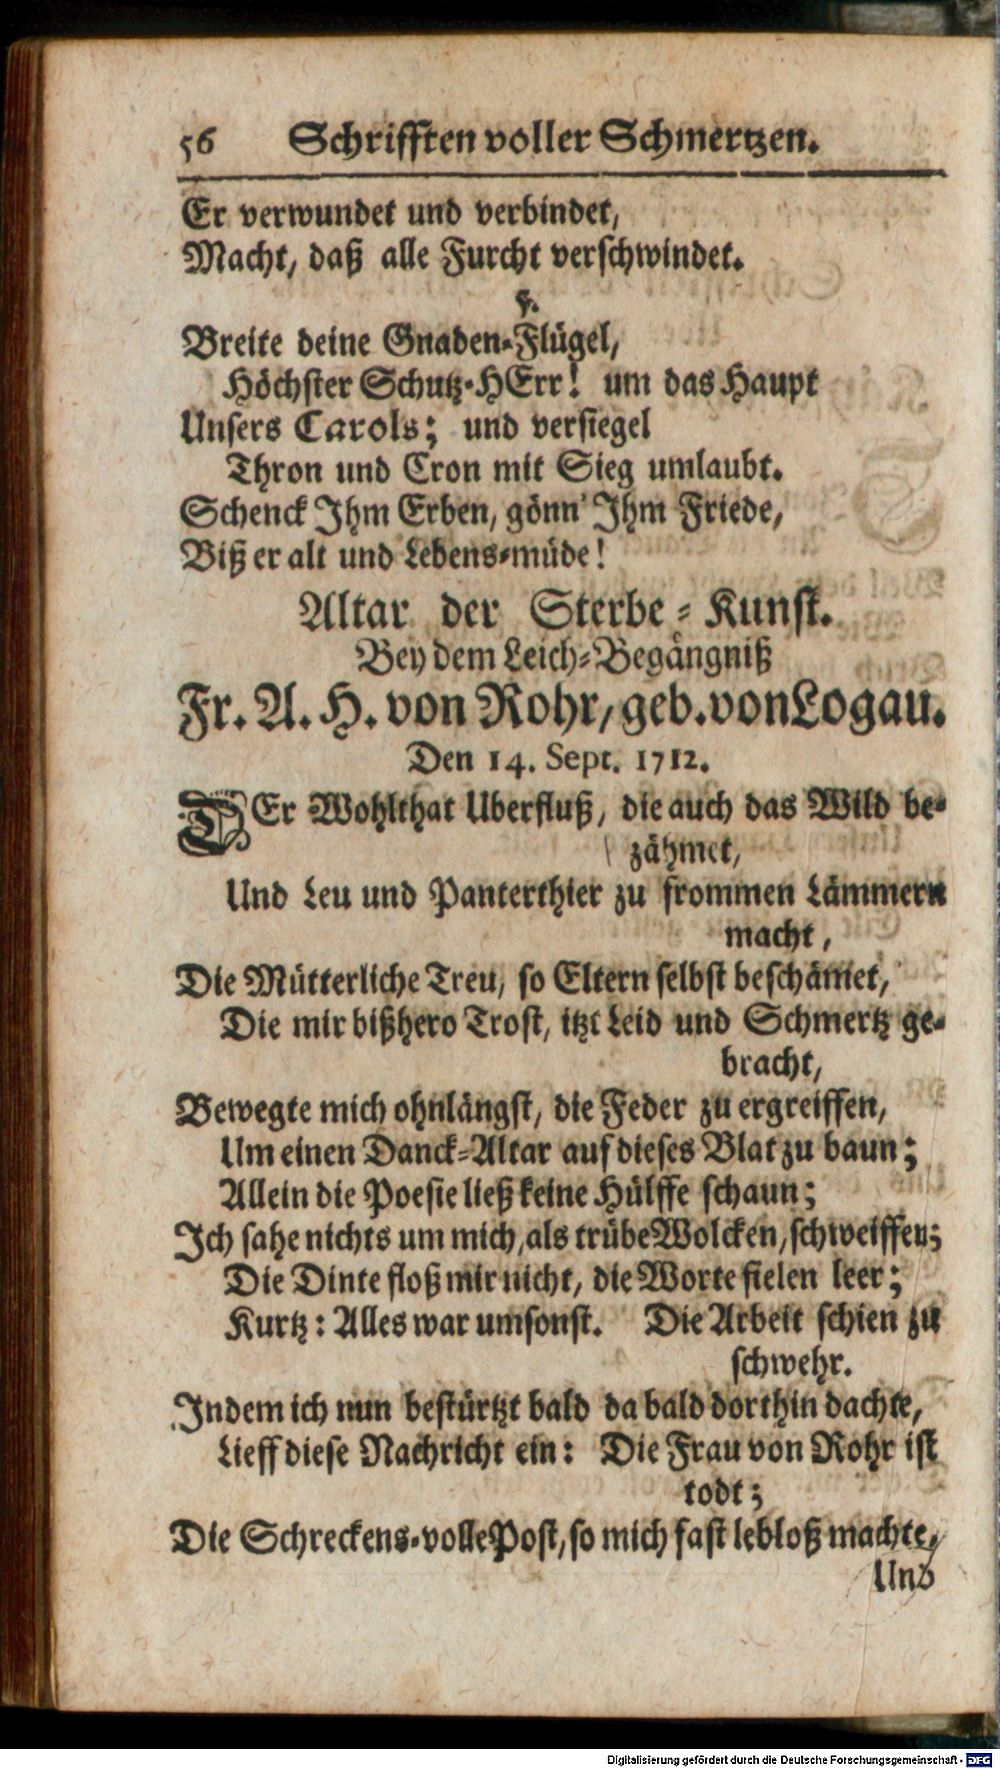 56 Schrifften voller Schmertzen.
Er verwundet und verbindet,
Macht, daß alle Furcht verschwindet.
5.
Breite deine Gnaden-Flügel,
Höchster Schutz-HErr! um das Haupt
Unsers Carols; und versiegel
Thron und Cron mit Sieg umlaubt.
Schenck Ihm Erben, gönn' Ihm Friede,
Biß er alt und Lebens-müde!
Altar der Sterbe-Kunst.
Bey dem Leich-Begängniß
Fr. A. H. von Rohr, geb. von Logau.
Den 14. Sept. 1712.
DEr Wohlthat Uberfluß, die auch das Wild be-
zähmet,
Und Leu und Panterthier zu frommen Lämmern
macht,
Die Mütterliche Treu, so Eltern selbst beschämet,
Die mir bißhero Trost, itzt Leid und Schmertz ge-
bracht,
Bewegte mich ohnlängst, die Feder zu ergreiffen,
Um einen Danck-Altar auf dieses Blat zu baun;
Allein die Poesie ließ keine Hülffe schaun;
Ich sahe nichts um mich, als trübe Wolcken, schweiffen;
Die Dinte floß mir nicht, die Worte fielen leer;
Kurtz: Alles war umsonst. Die Arbeit schien zu
schwehr.
Indem ich nun bestürtzt bald da bald dorthin dachte,
Lieff diese Nachricht ein: Die Frau von Rohr ist
todt;
Die Schreckens-volle Post, so mich fast lebloß machte,
Und
Digitalisierung gefördert durch die Deutsche Forschungsgemeinschaft - DFG